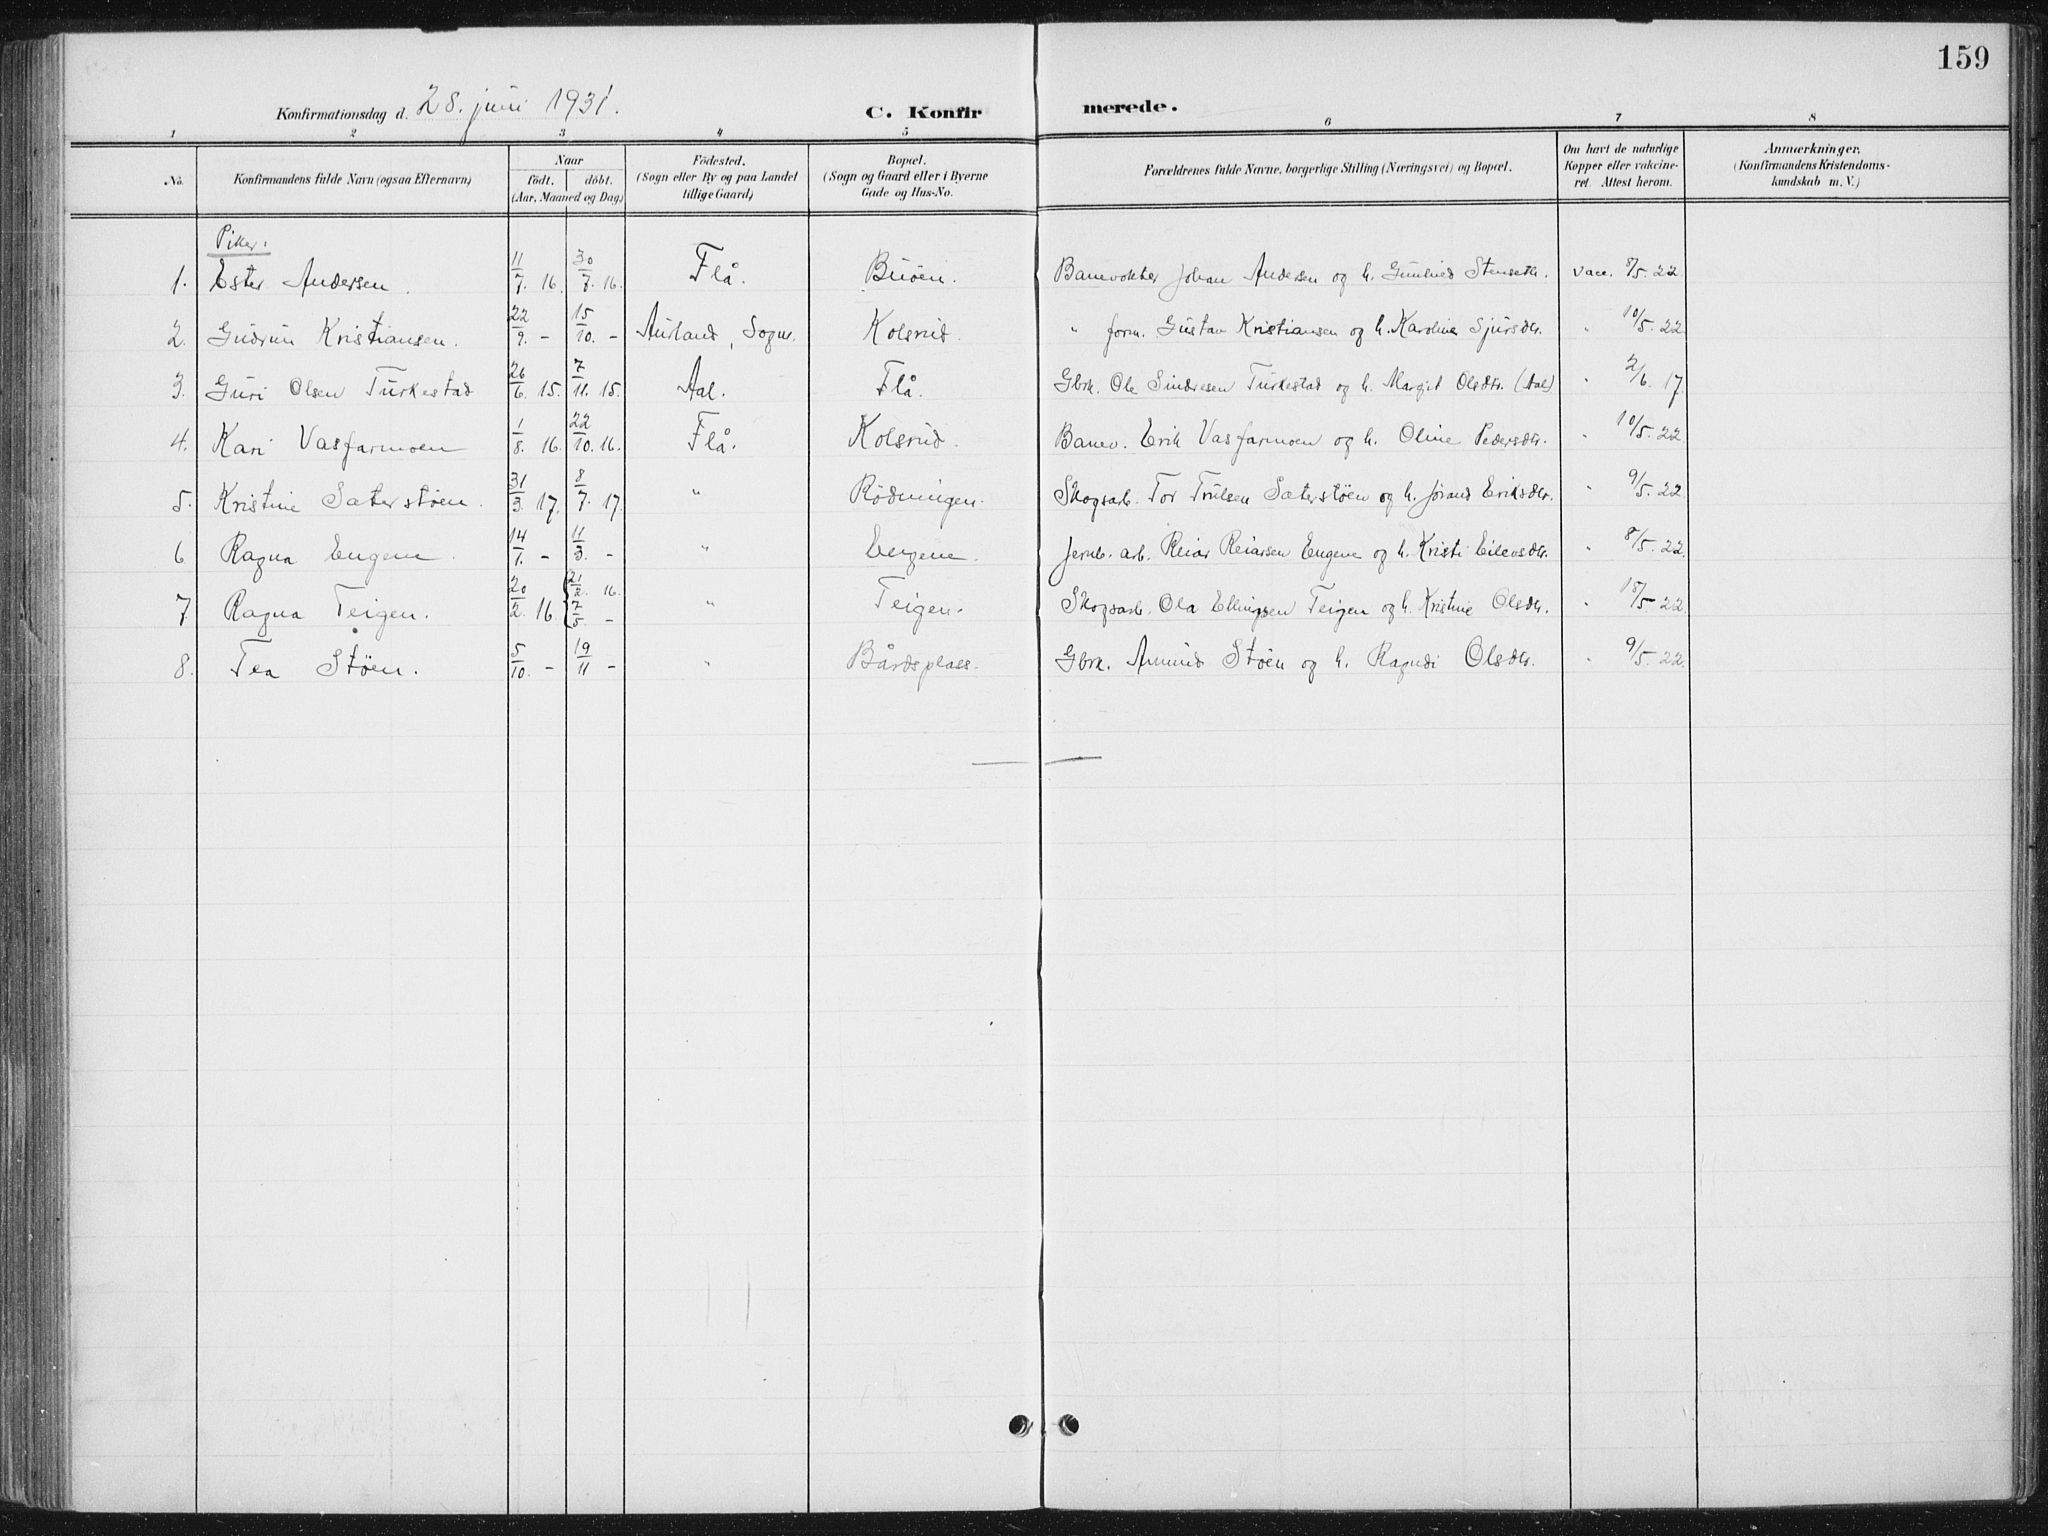 159
Konfirmationsdag d. 28. juni 1931. C. Konfir merede.
1 2 3 4 5 6 7 8
No. Konfirmandens fulde Navn (ogsaa Efternavn) Naar födt. döbt. (Aar, Maaned og Dag) Födested. (Sogn eller By og paa Landet tillige Gaard) Bopæl. (Sogn og Gaard eller i Byerne Gade og Hus-No. Forældrenes fulde Navne, borgerlige Stilling (Næringsvei) og Bopæl. Om havt de naturlige Kopper eller vakcineret. Attest herom. Anmærkninger, (Konfirmandens Kristendomskundskab m. V.)
Piker.
1. Ester Andersen. 11/7. 16. 30/7. 16. Flå. Buöen. Banevokter Johan Andersen og h. Gunhild Stenseth. vacc. 8/5. 22.
2. Gudrun Kristiansen. 22/9. - 15/10. - Aurland, Sogn. Kolsrud. " form. Gustav Kristiansen og h. Karoline Sjursdtr. " 10/5. 22
3. Guri Olsen Turkestad 26/6. 15. 7/11. 15. Aal. Flå. Gbrk. Ole Sindresen Turkestad og h. Margit Olsdtr. (Aal) " 2/6. 17.
4. Kari Vasfarmoen 1/8. 16. 22/10. 16. Flå. Kolsrud. Banev. Erik Vasfarmoen og h. Oline Pedersdtr. " 10/5. 22.
5. Kristine Sæterstöen. 31/3. 17. 8/7. 17. " Rödningen. Skogsarb. Tor Trulsen Sæterstöen og h. Jörand Eriksdtr. " 9/5. 22
6 Ragna Engene. 14/1. - 11/3. - " Engene. Jernb. arb. Reiar Reiarsen Engene og h. Kristi Eilevsdtr. " 8/5. 22.
7 Ragna Teigen. 20/2. 16. { 21/2. 16. 7/5. - " Teigen. Skogsarb. Ola Ellingsen Teigen og h. Kristine Olsdtr. " 18/5-22.
8. Tea Stöen. 5/10. - 19/11 - " Bårdsplass. Gbrk. Amund Stöen og h. Ragndi Olsdtr. " 9/5. 22.